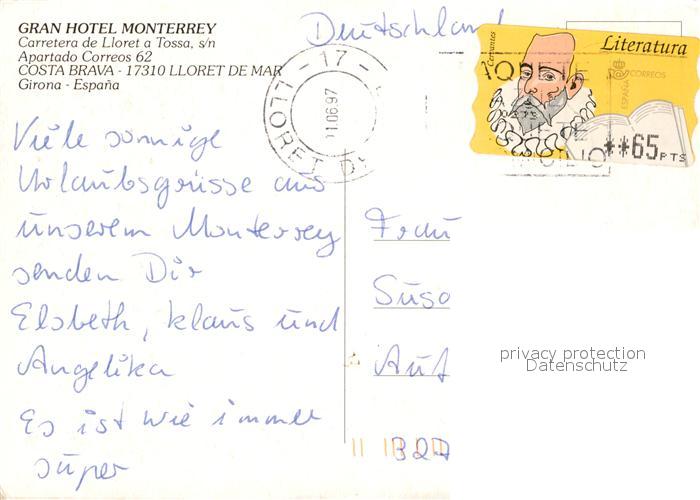 GRAN HOTEL MONTERREY
Carretera de Lloret a Tossa, s/n
Apartado Correos 62
COSTA BRAVA - 17310 LLORET DE MAR
Girona - España
Deutschland
Cervantes
Literatura
CORREOS
ESPAÑA
**65 PTS
- 17 -
11.06.97
LLORET D
Viele sonnige
Urlaubsgrüsse aus
unserem Monterrey
senden Dir
Elsbeth, Klaus und
Angelika
Es ist wie immer
super
Frau
Suso
Auf
327
privacy protection
Datenschutz